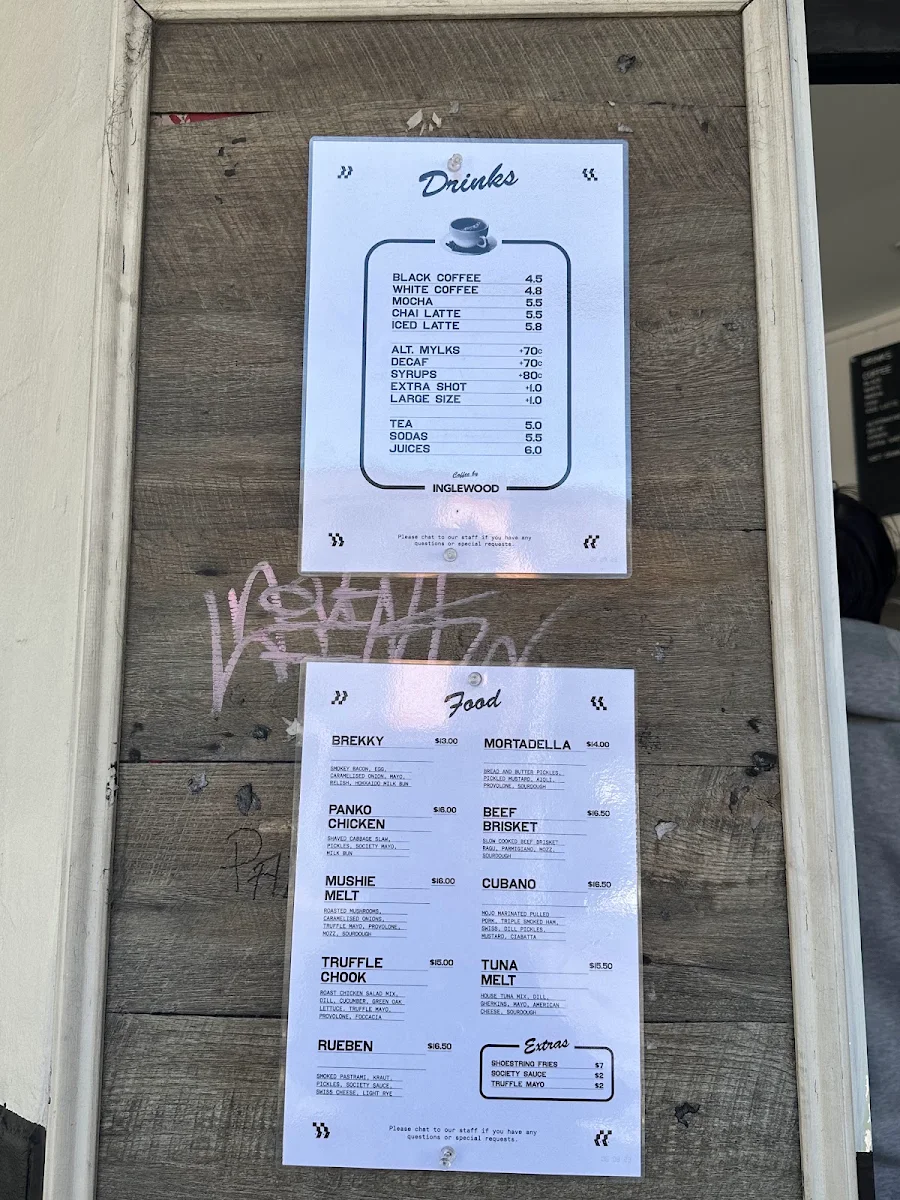 Drinks
BLACK COFFEE 4.5
WHITE COFFEE 4.8
MOCHA 5.5
CHAI LATTE 5.5
ICED LATTE 5.8
ALT. MYLKS +70c
DECAF +70c
SYRUPS +80c
EXTRA SHOT +1.0
LARGE SIZE +1.0
TEA 5.0
SODAS 5.5
JUICES 6.0
Coffee by
INGLEWOOD
Please chat to our staff if you have any
questions or special requests.
Food
BREKKY $13.00
SMOKEY BACON, EGG,
CARAMELISED ONION, MAYO,
RELISH, HOKKAIDO MILK BUN
PANKO $16.00
CHICKEN
SHAVED CABBAGE SLAW,
PICKLES, SOCIETY MAYO,
MILK BUN
MUSHIE $16.00
MELT
ROASTED MUSHROOMS,
CARAMELISED ONIONS,
TRUFFLE MAYO, PROVOLONE,
MOZZ, SOURDOUGH
TRUFFLE $15.00
CHOOK
ROAST CHICKEN SALAD MIX,
DILL, CUCUMBER, GREEN OAK
LETTUCE, TRUFFLE MAYO,
PROVOLONE, FOCCACIA
RUEBEN $16.50
SMOKED PASTRAMI, KRAUT,
PICKLES, SOCIETY SAUCE,
SWISS CHEESE, LIGHT RYE
MORTADELLA $14.00
BREAD AND BUTTER PICKLES,
PICKLED MUSTARD, AIOLI,
PROVOLONE, SOURDOUGH
BEEF $16.50
BRISKET
SLOW COOKED BEEF BRISKET
RAGU, PARMIGIANO, MOZZ,
SOURDOUGH
CUBANO $16.50
MOJO MARINATED PULLED
PORK, TRIPLE SMOKED HAM,
SWISS, DILL PICKLES,
MUSTARD, CIABATTA
TUNA $15.50
MELT
HOUSE TUNA MIX, DILL,
GHERKINS, MAYO, AMERICAN
CHEESE, SOURDOUGH
Extras
SHOESTRING FRIES $7
SOCIETY SAUCE $2
TRUFFLE MAYO $2
Please chat to our staff if you have any
questions or special requests.
DRINKS
COFFEE